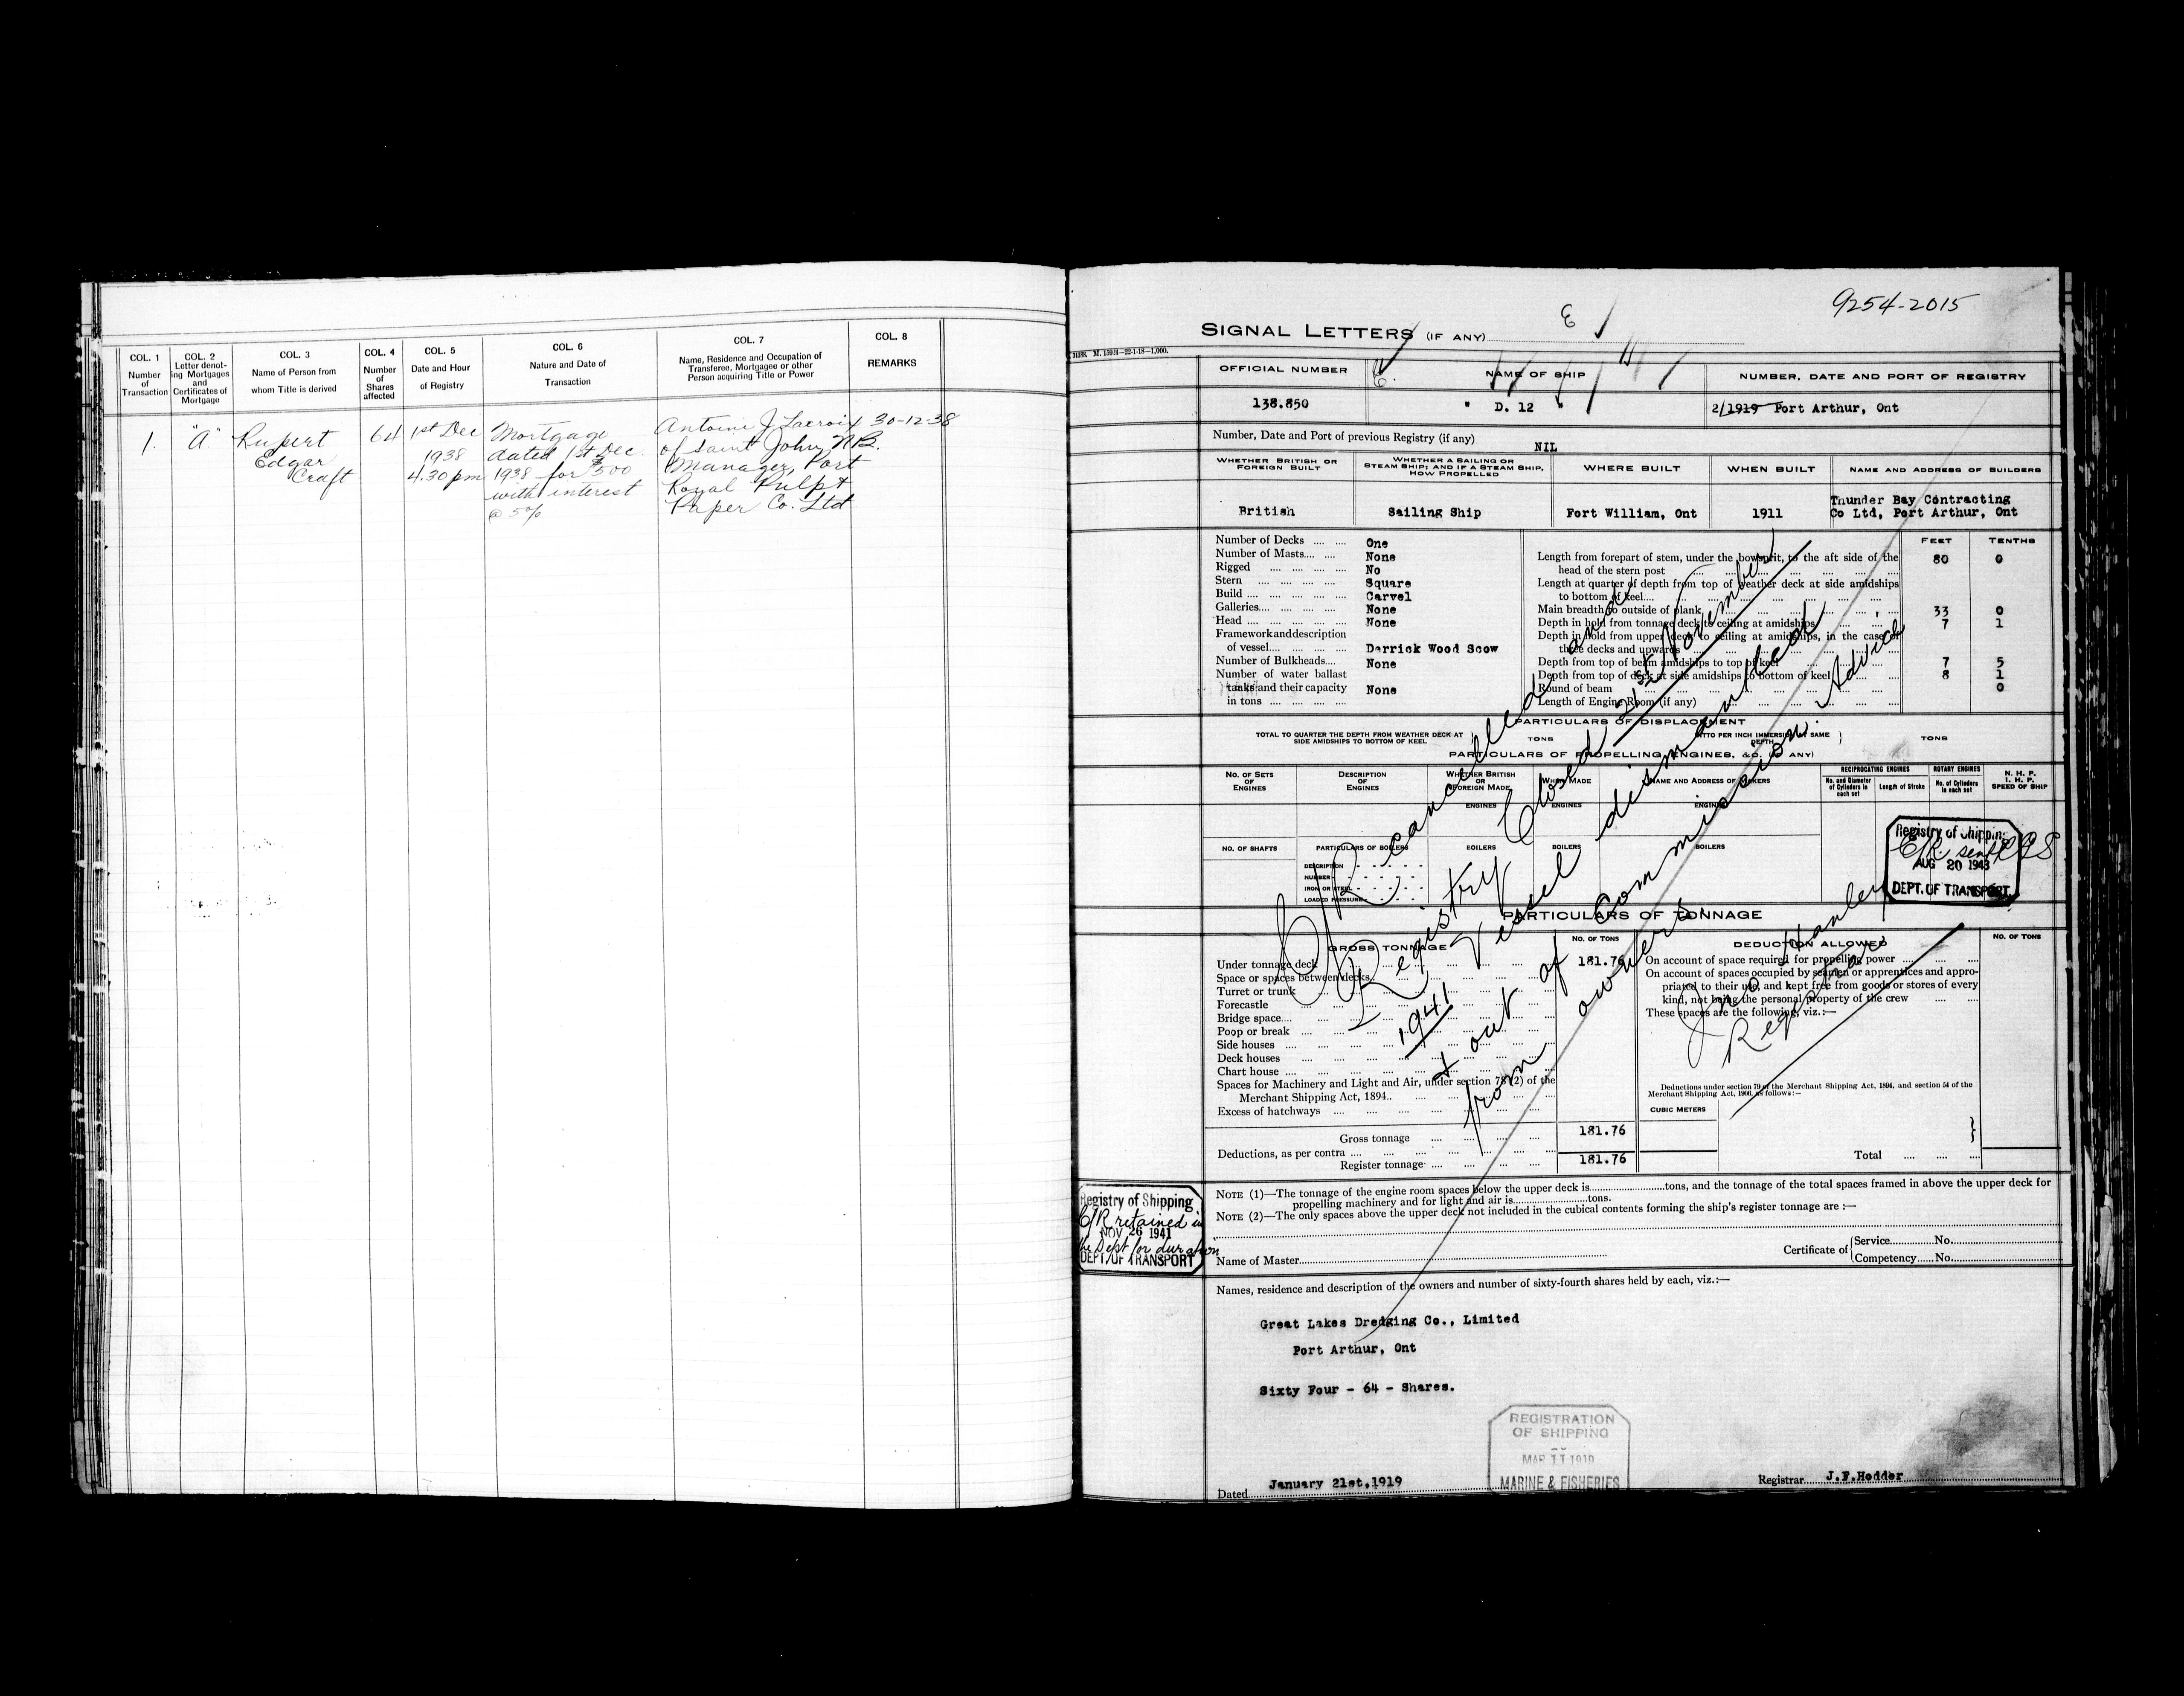 COL. 1
Number
of
Transaction
COL. 2
Letter denot-
ing Mortgages
and
Certificates of
Mortgage
COL. 3
Name of Person from
whom Title is derived
COL. 4
Number
of
Shares
affected
COL. 5
Date and Hour
of Registry
COL. 6
Nature and Date of
Transaction
COL. 7
Name, Residence and Occupation of
Transferee, Mortgagee or other
Person acquiring Title or Power
COL. 8
REMARKS
1.
"A"
Rupert
Edgar
Craft
64
1st Dec
1938
4.30 pm
Mortgage
dated 1st Dec.
1938 for $500
with interest
@ 5%
Antoine J Lacroix
of Saint John N.B.
Manager, Port
Royal Pulp &
Paper Co. Ltd
30-12-38
9254-2015
SIGNAL LETTERS (IF ANY)
OFFICIAL NUMBER
138.850
NAME OF SHIP
" D. 12 "
NUMBER, DATE AND PORT OF REGISTRY
2/1919 Port Arthur, Ont
Number, Date and Port of previous Registry (if any)
NIL
WHETHER BRITISH OR
FOREIGN BUILT
British
WHETHER A SAILING OR
STEAM SHIP; AND IF A STEAM SHIP,
HOW PROPELLED
Sailing Ship
WHERE BUILT
Fort William, Ont
WHEN BUILT
1911
NAME AND ADDRESS OF BUILDERS
Thunder Bay Contracting
Co Ltd, Port Arthur, Ont
Number of Decks .... .... One
Number of Masts.... .... None
Rigged .... .... .... .... No
Stern .... .... .... .... Square
Build .... .... .... .... Carvel
Galleries.... .... .... .... None
Head .... .... .... .... None
Framework and description
of vessel.... .... .... Derrick Wood Scow
Number of Bulkheads.... None
Number of water ballast
tanks and their capacity None
in tons .... .... ....
FEET TENTHS
Length from forepart of stem, under the bowsprit, to the aft side of the
head of the stern post 80 0
Length at quarter of depth from top of weather deck at side amidships
to bottom of keel....
Main breadth to outside of plank 33 0
Depth in hold from tonnage deck to ceiling at amidships 7 1
Depth in hold from upper deck to ceiling at amidships, in the case of
three decks and upwards
Depth from top of beam amidships to top of keel 7 5
Depth from top of deck at side amidships to bottom of keel 8 1
Round of beam 0
Length of Engine Room (if any)
PARTICULARS OF DISPLACEMENT
TOTAL TO QUARTER THE DEPTH FROM WEATHER DECK AT
SIDE AMIDSHIPS TO BOTTOM OF KEEL
TONS
DITTO PER INCH IMMERSION AT SAME
DEPTH
TONS
PARTICULARS OF PROPELLING ENGINES, &C. (IF ANY)
NO. OF SETS
OF
ENGINES
DESCRIPTION
OF
ENGINES
WHETHER BRITISH
OR
FOREIGN MADE
WHEN MADE
NAME AND ADDRESS OF MAKERS
RECIPROCATING ENGINES
No. and Diameter
of Cylinders in
each set
Length of Stroke
ROTARY ENGINES
No. of Cylinders
in each set
N. H. P.
I. H. P.
SPEED OF SHIP
ENGINES ENGINES ENGINES
NO. OF SHAFTS
PARTICULARS OF BOILERS
BOILERS BOILERS BOILERS
DESCRIPTION
NUMBER
IRON OR STEEL
LOADED PRESSURE
Registry of Shipping
C/R. sent
AUG 20 1943
DEPT. OF TRANSPORT
C/R cancelled and
Registry Closed 21st November
1941 Vessel dismantled
& out of Commission. Advice
from owners
Jno Hanley
Registrar
PARTICULARS OF TONNAGE
GROSS TONNAGE
NO. OF TONS
Under tonnage deck 181.76
Space or spaces between decks
Turret or trunk
Forecastle
Bridge space....
Poop or break
Side houses
Deck houses
Chart house
Spaces for Machinery and Light and Air, under section 78 (2) of the
Merchant Shipping Act, 1894..
Excess of hatchways
Gross tonnage 181.76
Deductions, as per contra
Register tonnage 181.76
DEDUCTION ALLOWED
NO. OF TONS
On account of space required for propelling power
On account of spaces occupied by seamen or apprentices and appro-
priated to their use, and kept free from goods or stores of every
kind, not being the personal property of the crew
These spaces are the following, viz.:—
Deductions under section 79 of the Merchant Shipping Act, 1894, and section 54 of the
Merchant Shipping Act, 1906, as follows:—
CUBIC METERS
Total
NOTE (1)—The tonnage of the engine room spaces below the upper deck is............tons, and the tonnage of the total spaces framed in above the upper deck for
propelling machinery and for light and air is............tons.
NOTE (2)—The only spaces above the upper deck not included in the cubical contents forming the ship's register tonnage are :—
Registry of Shipping
C/R retained in
NOV 26 1941
the Dept for duration
DEPT. OF TRANSPORT
Name of Master
Certificate of
Service............No.
Competency......No.
Names, residence and description of the owners and number of sixty-fourth shares held by each, viz.:—
Great Lakes Dredging Co., Limited
Port Arthur, Ont
Sixty Four - 64 - Shares.
REGISTRATION
OF SHIPPING
MAR 11 1919
MARINE & FISHERIES
Dated January 21st, 1919
Registrar J.F.Hodder